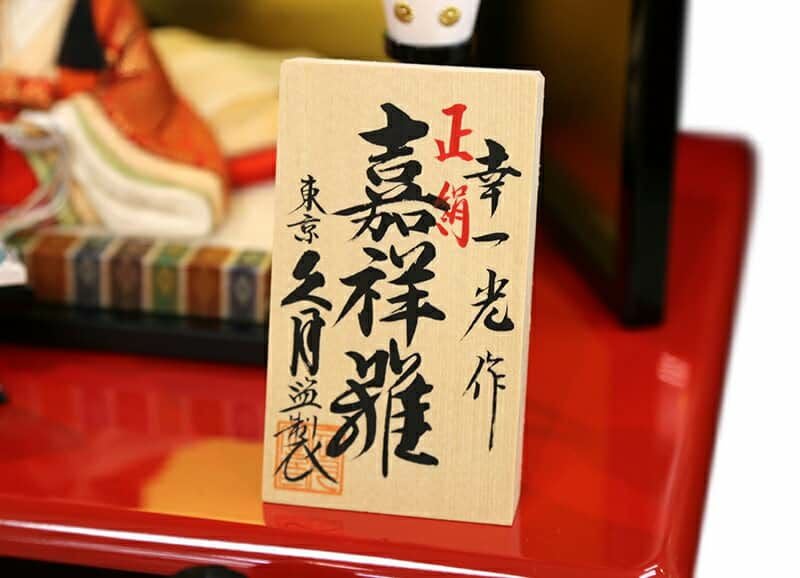 幸一光作
正絹
嘉祥雛
東京久月監製